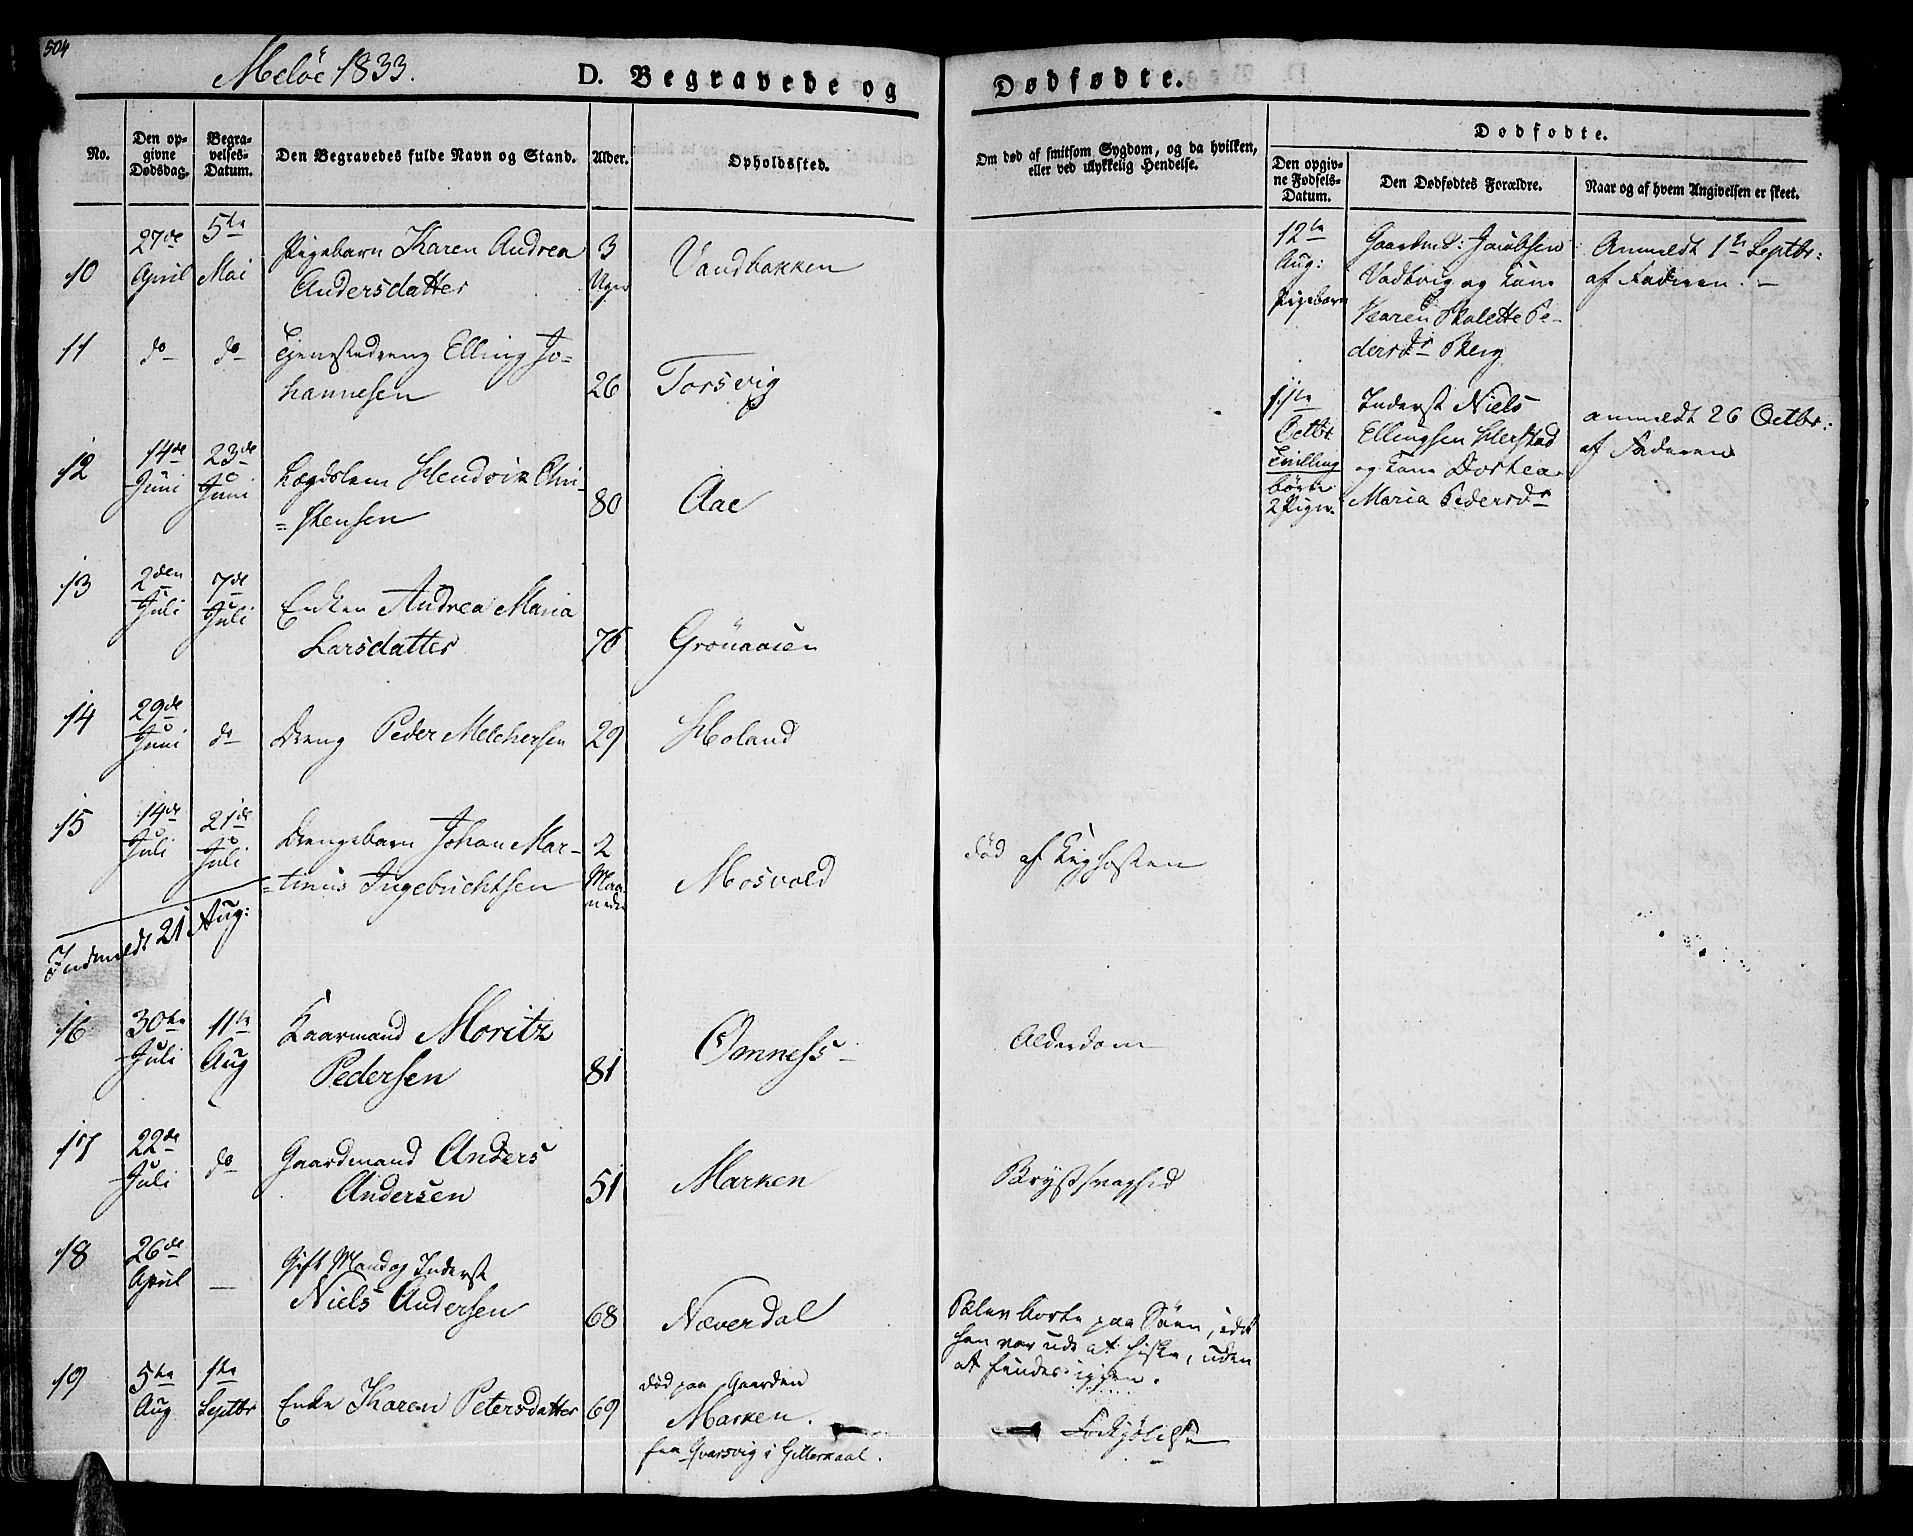 504
Meløe 1833.
D. Begravede og Dødfødte.
No.
Den opgivne Dødsdag.
Begravelses-Datum.
Den Begravedes fulde Navn og Stand.
Alder.
Opholdssted.
Om død af smitsom Sygdom, og da hvilken, eller ved ulykkelig Hendelse.
Dødfødte.
Den opgivne Fødsels-Datum.
Den Dødfødtes Forældre.
Naar og af hvem Angivelsen er skeet.
10 27de April 5te Mai Pigebarn Karen Andrea 3 Uger Vandbakken
Andersdatter
11 do do Tjenestedreng Elling Jo=
hannesen 26 Torsvig
12 14de Juni 23de Juni Lægdslem Hendrik Chri=
=stensen 80 Aae
13 2den Juli 7de Juli Enken Andrea Maria
Larsdatter 76 Grønaasen
14 29de Juni do Dreng Peder Melchersen 29 Holand
15 14de Juli 21de Juli Drengebarn Johan Mar= 2 Maaneder
=tinus Ingebrichtsen Mosvold død af Kighosten
Indmeldt 21 Aug:
16 30te Juli 11te Aug Kaarmand Moritz
Pedersen 81 Ømness Alderdom
17 22de Juli do Gaardmand Anders
Andersen 51 Marken Brystsvaghed
18 26de April — Gift Mand og Inderst
Niels Andersen 68 Næverdal
Blev borte paa Søen, idet
han var ude at fiske, uden
at findes igjen.
19 5te Aug 1te Septbr Enke Karen Petersdatter 69
død paa Gaarden
Marken.
fra Qvarsvig i Gilleskaal.
Forkjølelse
12te Aug: Pigebarn
Gaardmd: Jacobsen
Vadvig og Kone
Karen Malette Pe=
dersdr Berg
Anmeldt 1te Septbr:
af Faderen. —
11te Octbr Tvilling børn 2 Piger.
Inderst Niels
Ellingsen Herstad
og Kone Dortea
Maria Pedersdr
anmeldt 26 Octbr:
af Faderen